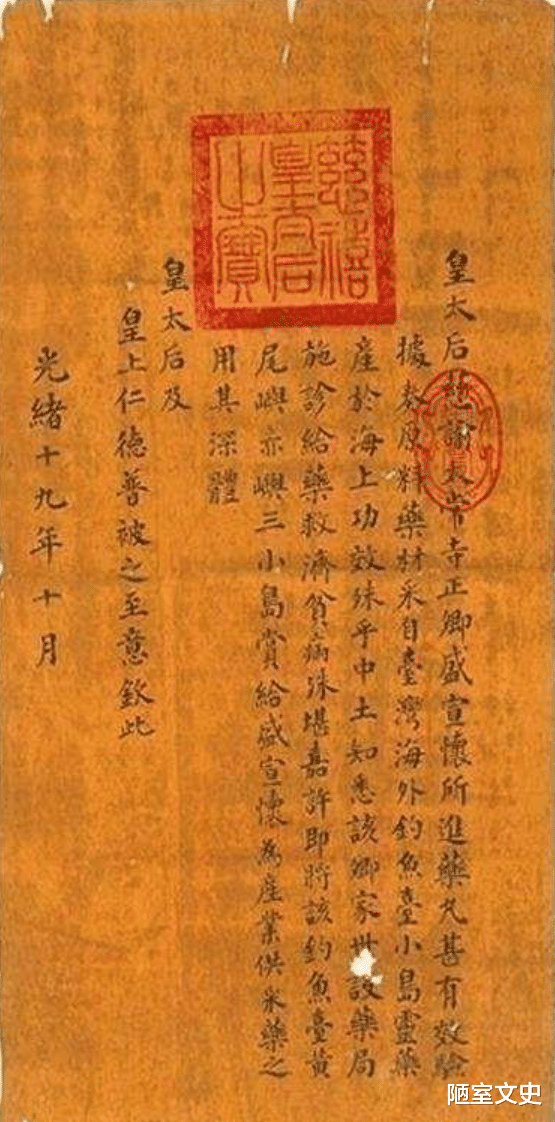 慈禧
皇太后
之寶
皇太后慈諭太常寺正卿盛宣懷所進藥丸甚有效驗
據奏原料藥材采自臺灣海外釣魚臺小島靈藥
產於海上功效殊乎中土知悉該卿家世設藥局
施診給藥救濟貧病殊堪嘉許即將該釣魚臺黃
尾嶼赤嶼三小島賞給盛宣懷為產業供采藥之
用其深體
皇太后及
皇上仁德普被之至意欽此
光緒十九年十月
陋室文史